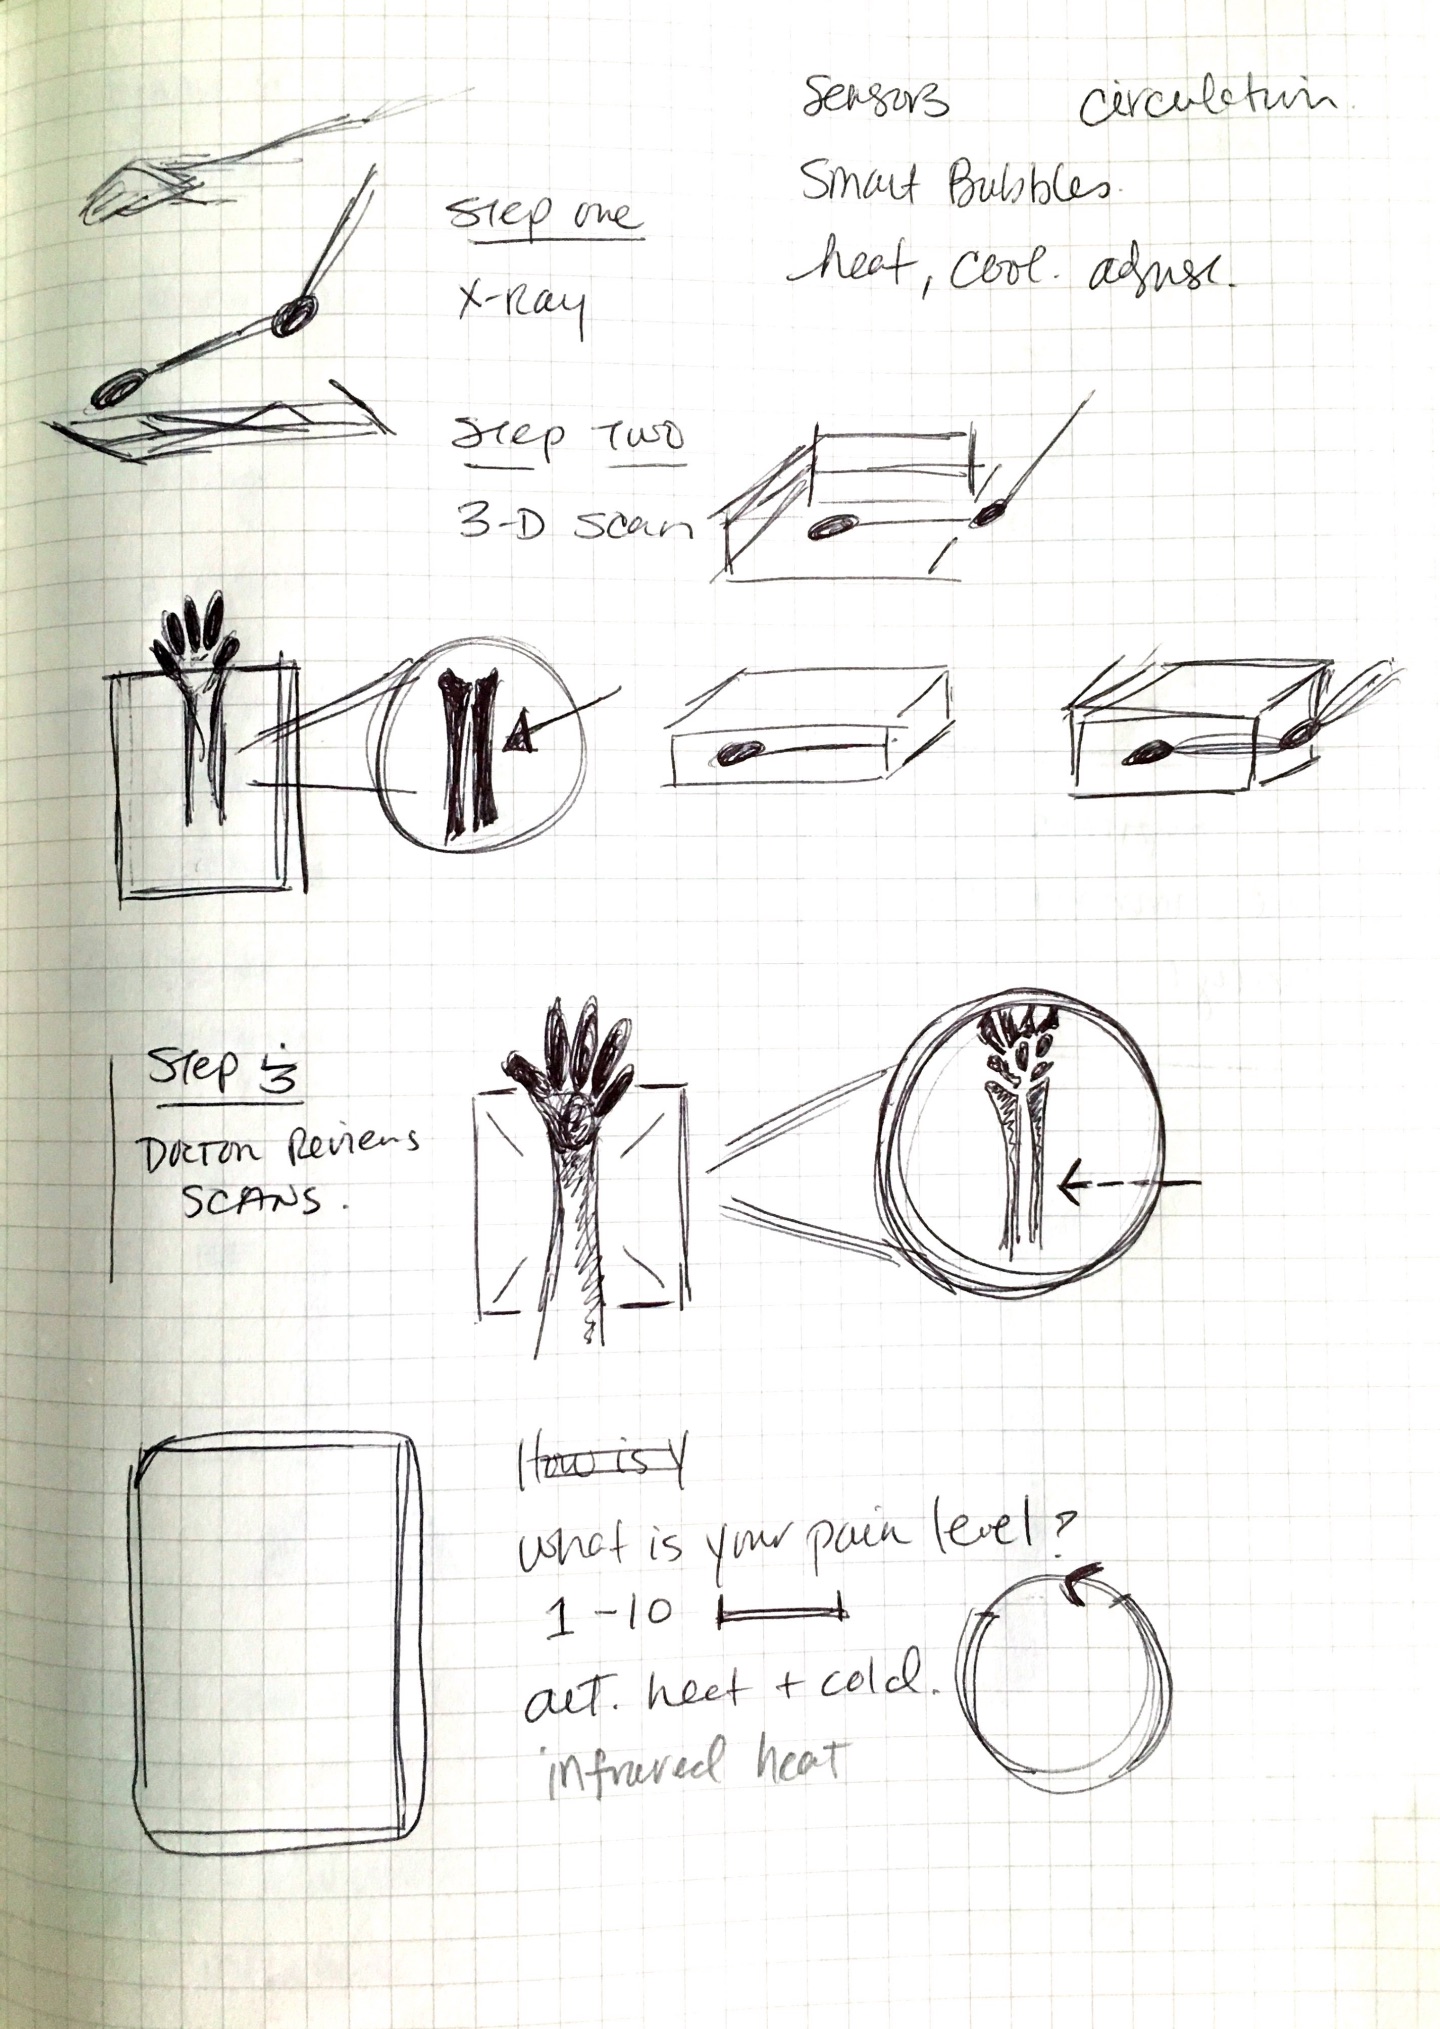 Sensors circulation.
Smart Bubbles.
heat, cool. adjust.
Step one
X-Ray
Step Two
3-D Scan
Step 3
Doctor Reviews
SCANS.
How is Y
what is your pain level?
1-10
act. heat + cold.
infrared heat